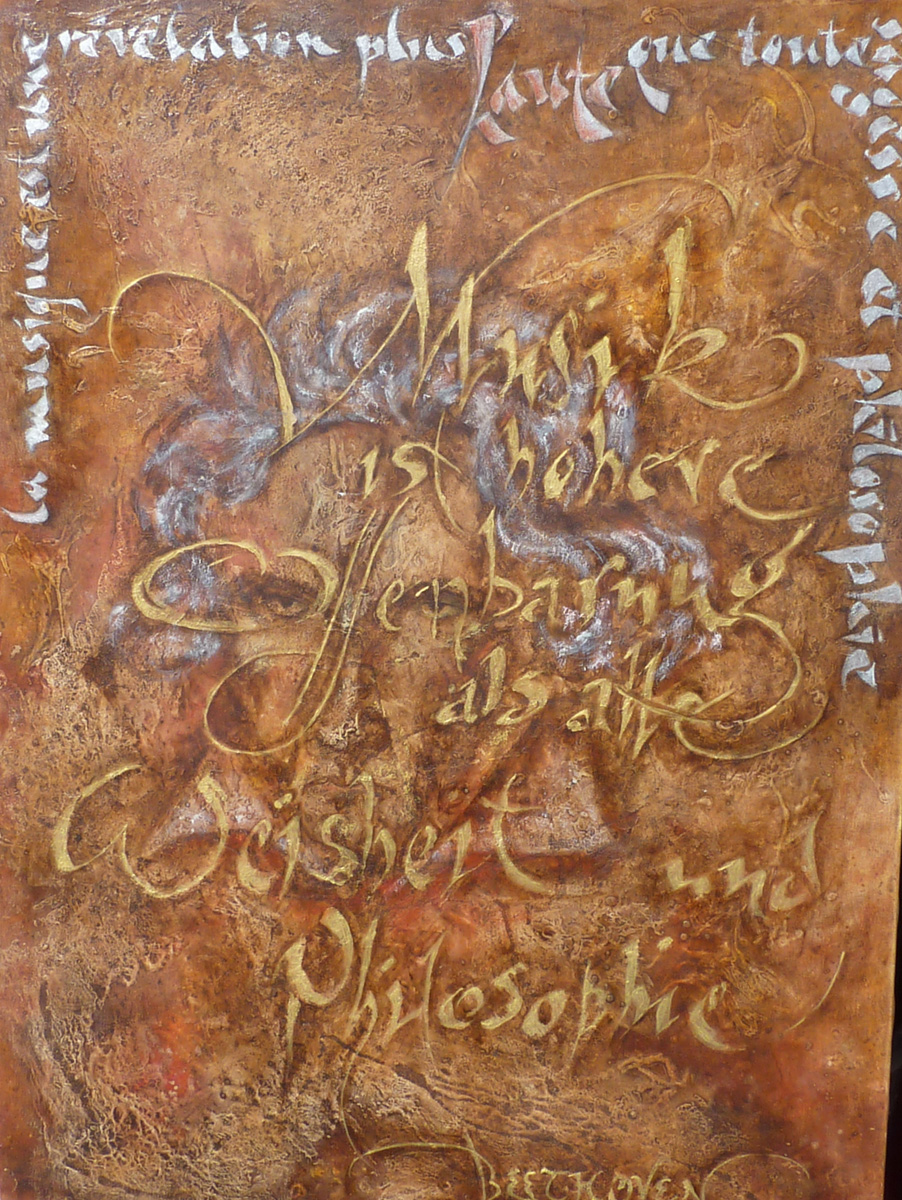 la musique est une
révélation plus haute que toute
sagesse et philosophie
Musik
ist hohere
Offenbarung
als alle
Weisheit und
Philosophie
BEETHOVEN